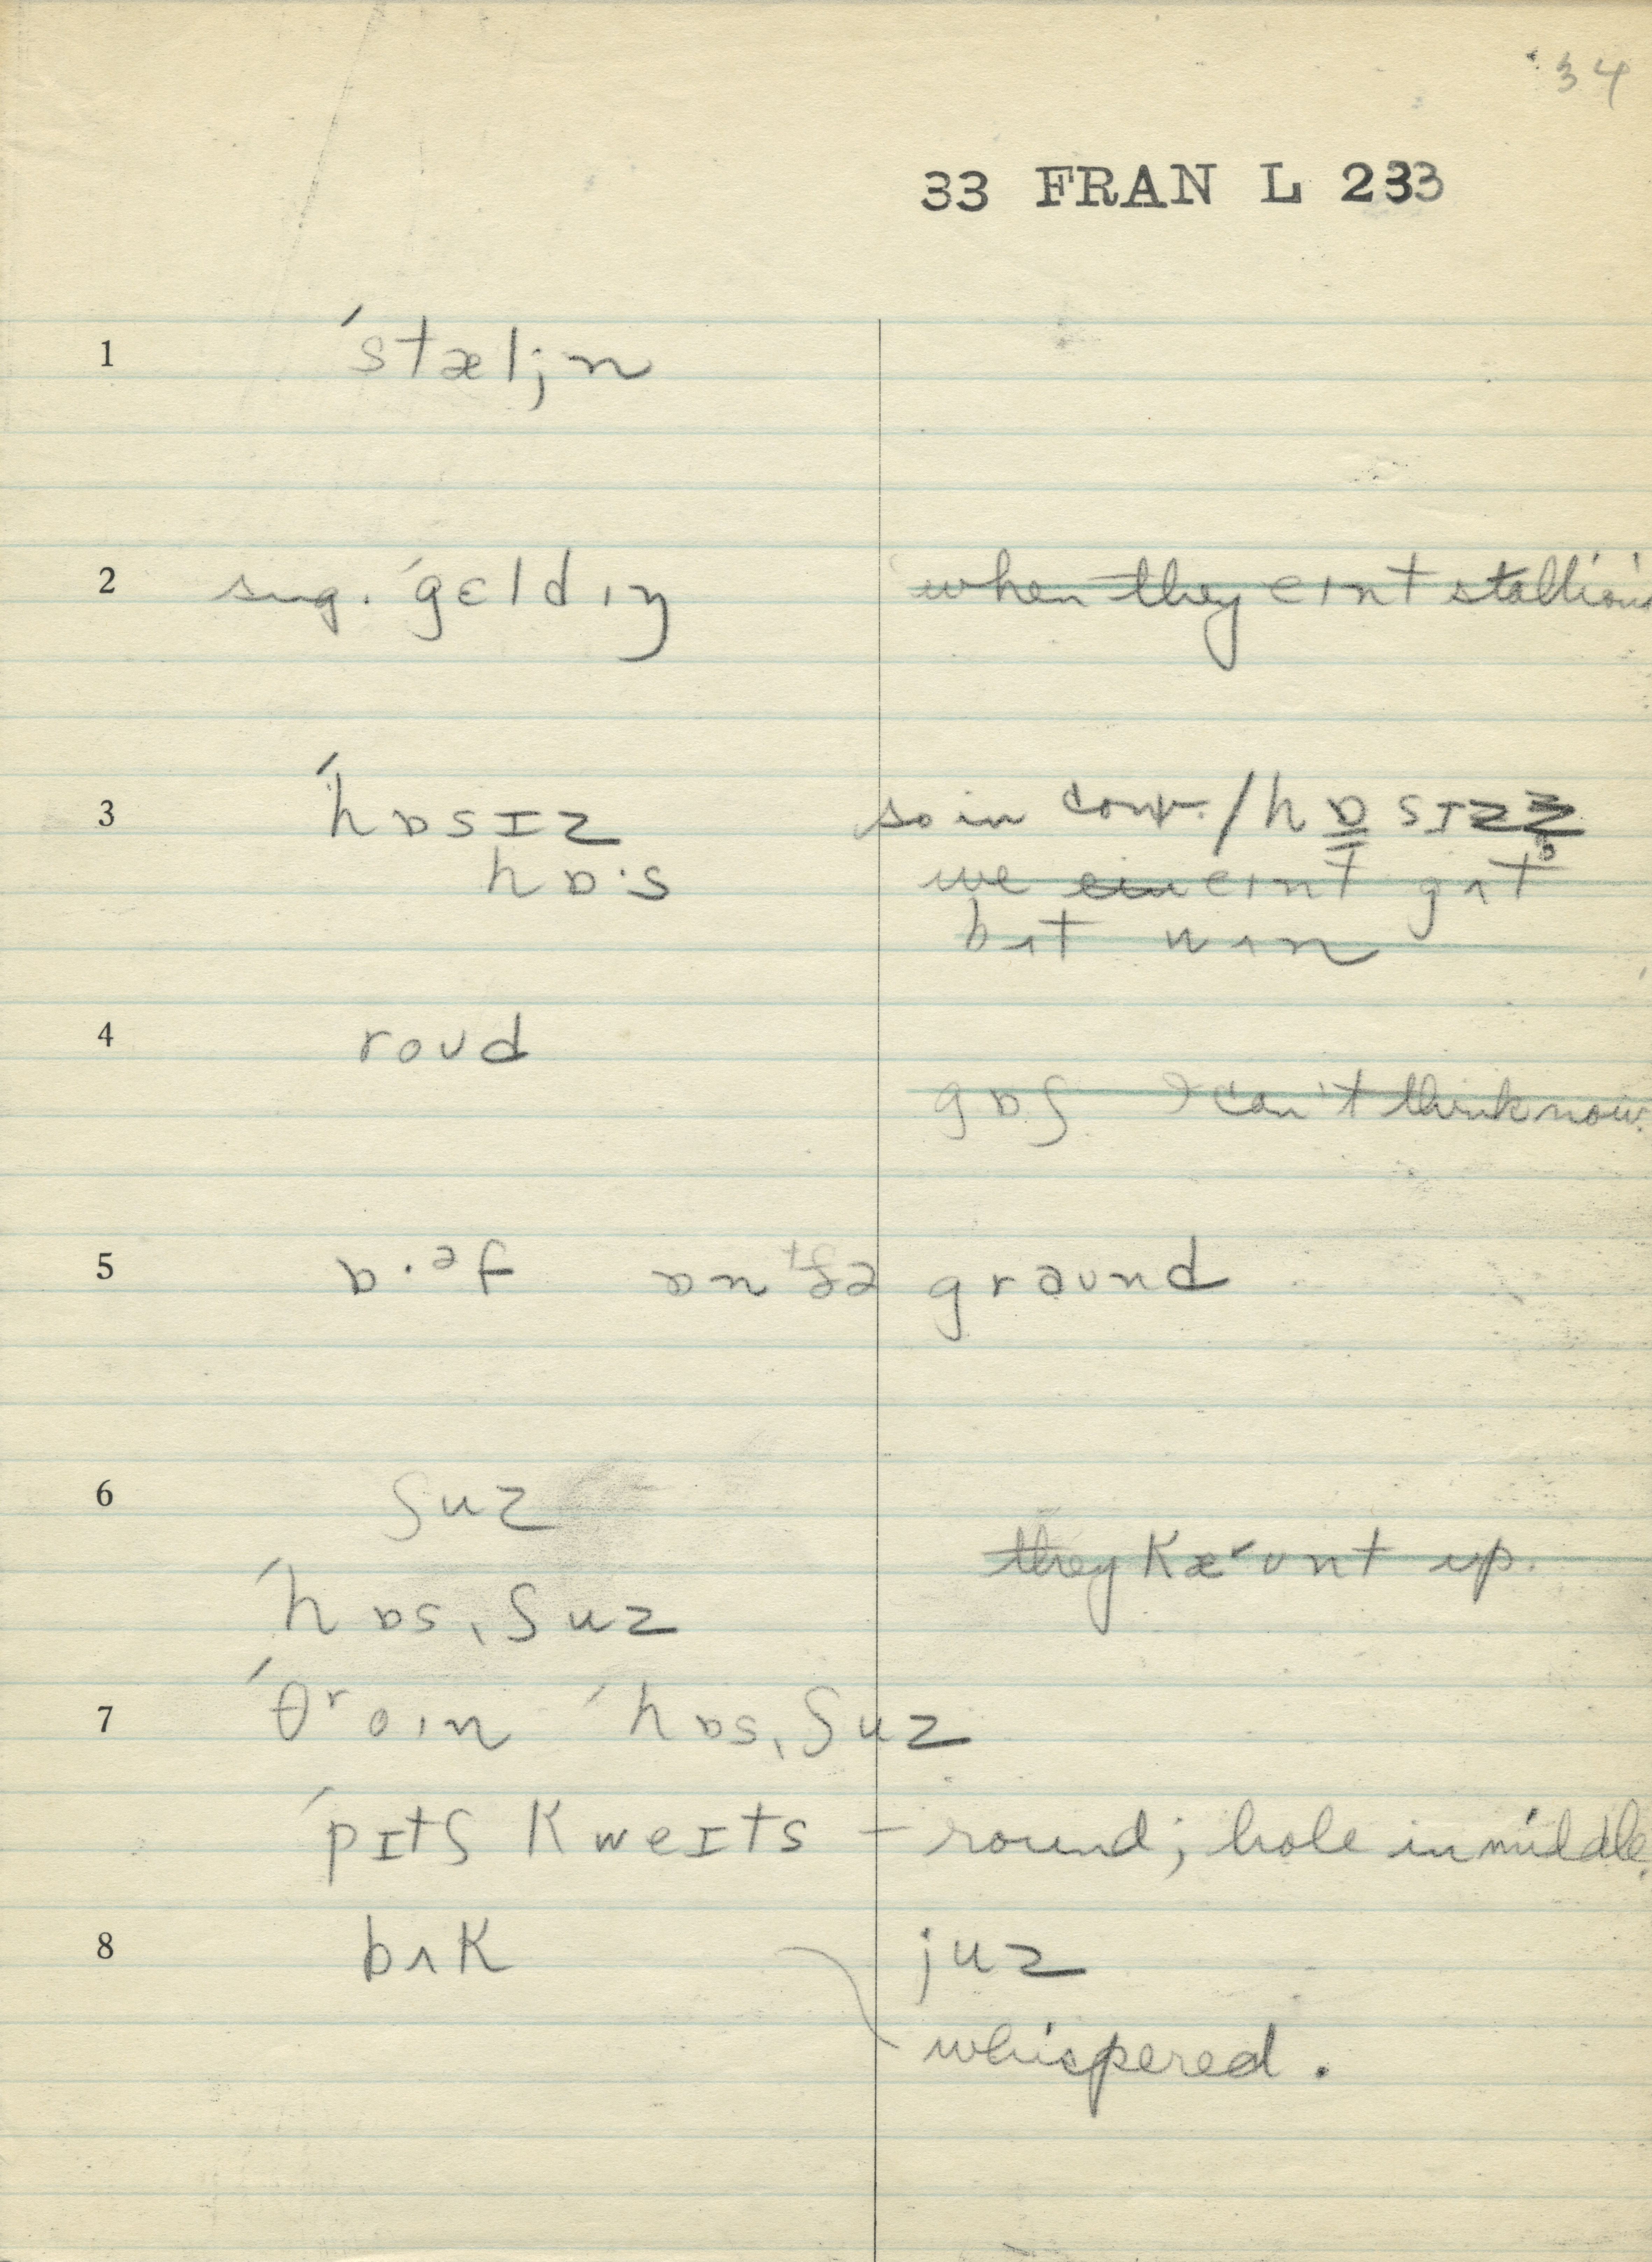 34
33 FRAN L 233
1 ˈstæljn
2 sug. ˈgɛldɪŋ when they eɪnt stallions
3 ˈhɒsɪz so in conv. / hɒsɪz
hɒ·s we eɪnt gʌt
bʌt wʌn
4 roʊd
gɒʃ I can't think now.
5 ɒ·əf ɒn ðə graʊnd
6 ʃuz
they kærʊnt up.
ˈhɒsˌʃuz
7 ˈθroɪn ˈhɒsˌʃuz
ˈpɪtʃ kweɪts – round; hole in middle.
8 bʌk juz
whispered.